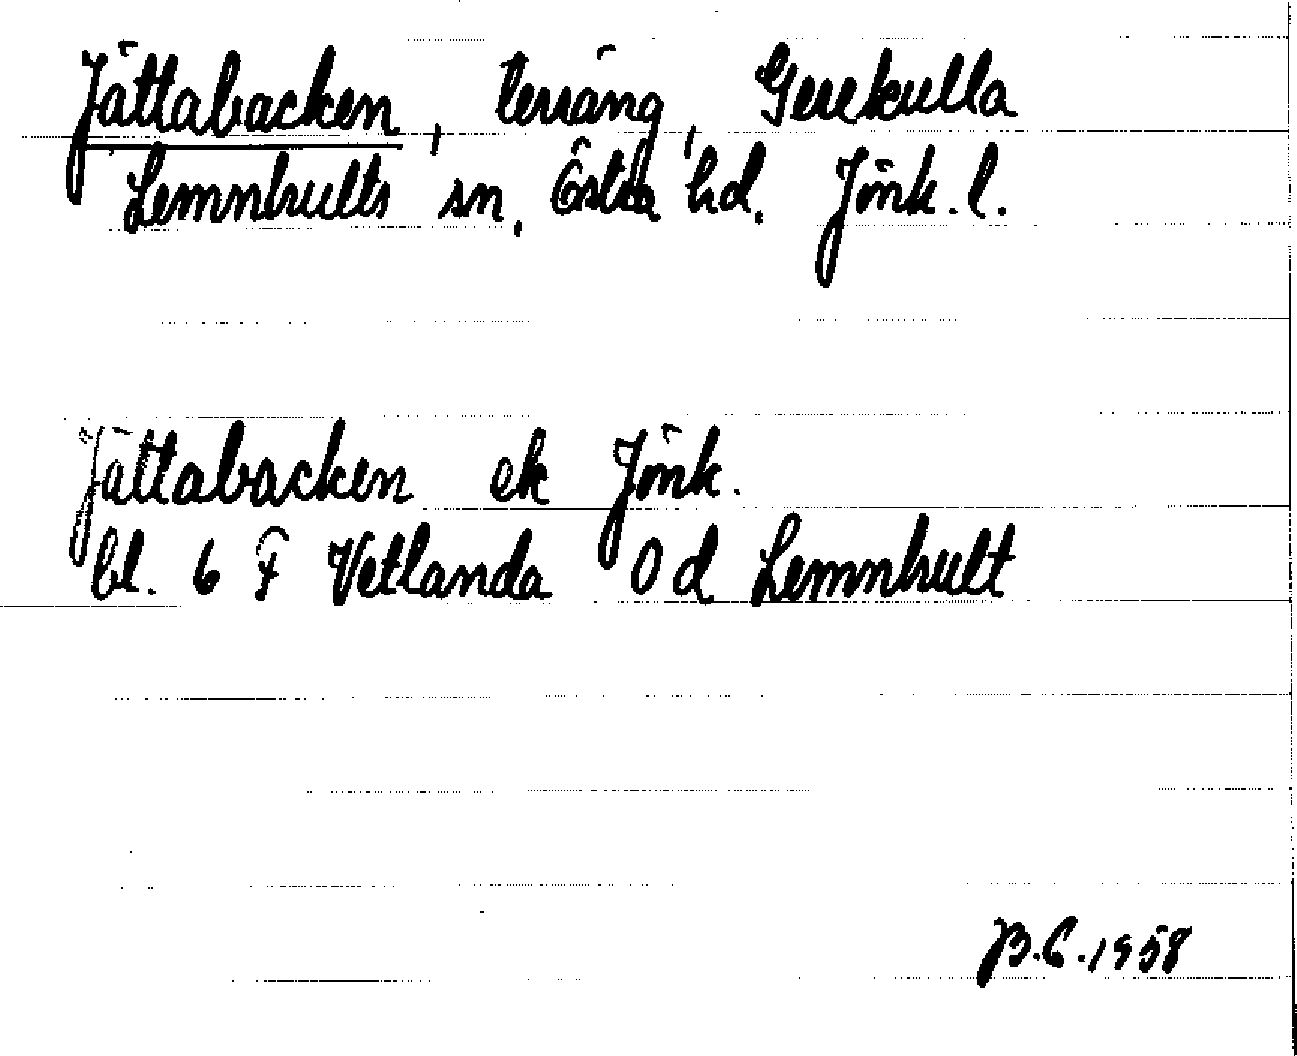 Jättabacken, terräng, Gerekulla
Lemnhults sn. Östra hd. Jönk. l.
Jättabacken ek Jönk.
bl. 6 F Vetlanda 0 d Lemnhult
B.C. 1958